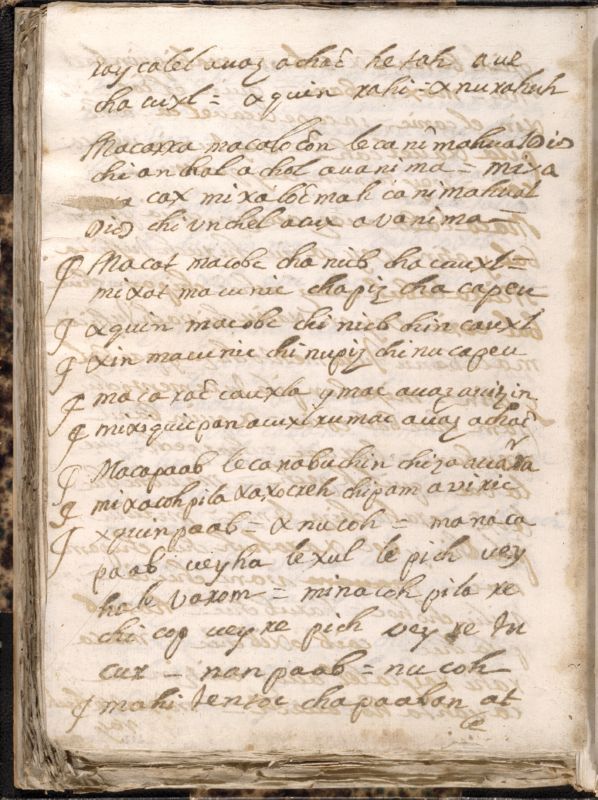 ray calel auaz achać he tah a ue
cha cuxl = x quin rahi = x nu rahuh
Macarra macalo cōn le ca nimahual Dios
chi an bal a chol auanima = mixa
cax mi xa loć mah ca nimahual
Dios chi vnchel aaux avanima =
Macat macobc cha nicb cha cuuxl =
mixat macunic chapiz cha capeu
xquin macobc chi nicb chin cauxl
xin macunic chi nupiz chi nu capeu
maca rać cauxla ymac auaz auitzin
mixiquic pan acuxl rumac auaz achać
Macapaab le ca rabuchin chiza
mixacoh pila xaxocreh chipam a viric
xquin paab = x nu coh = manaca
paab ueyha le xul le pich uey
ha le vaxom = minacoh pila re
chi cop uey re pich uey re tu
cur = nan paab = nu coh
mahi tentoc chapaaban at